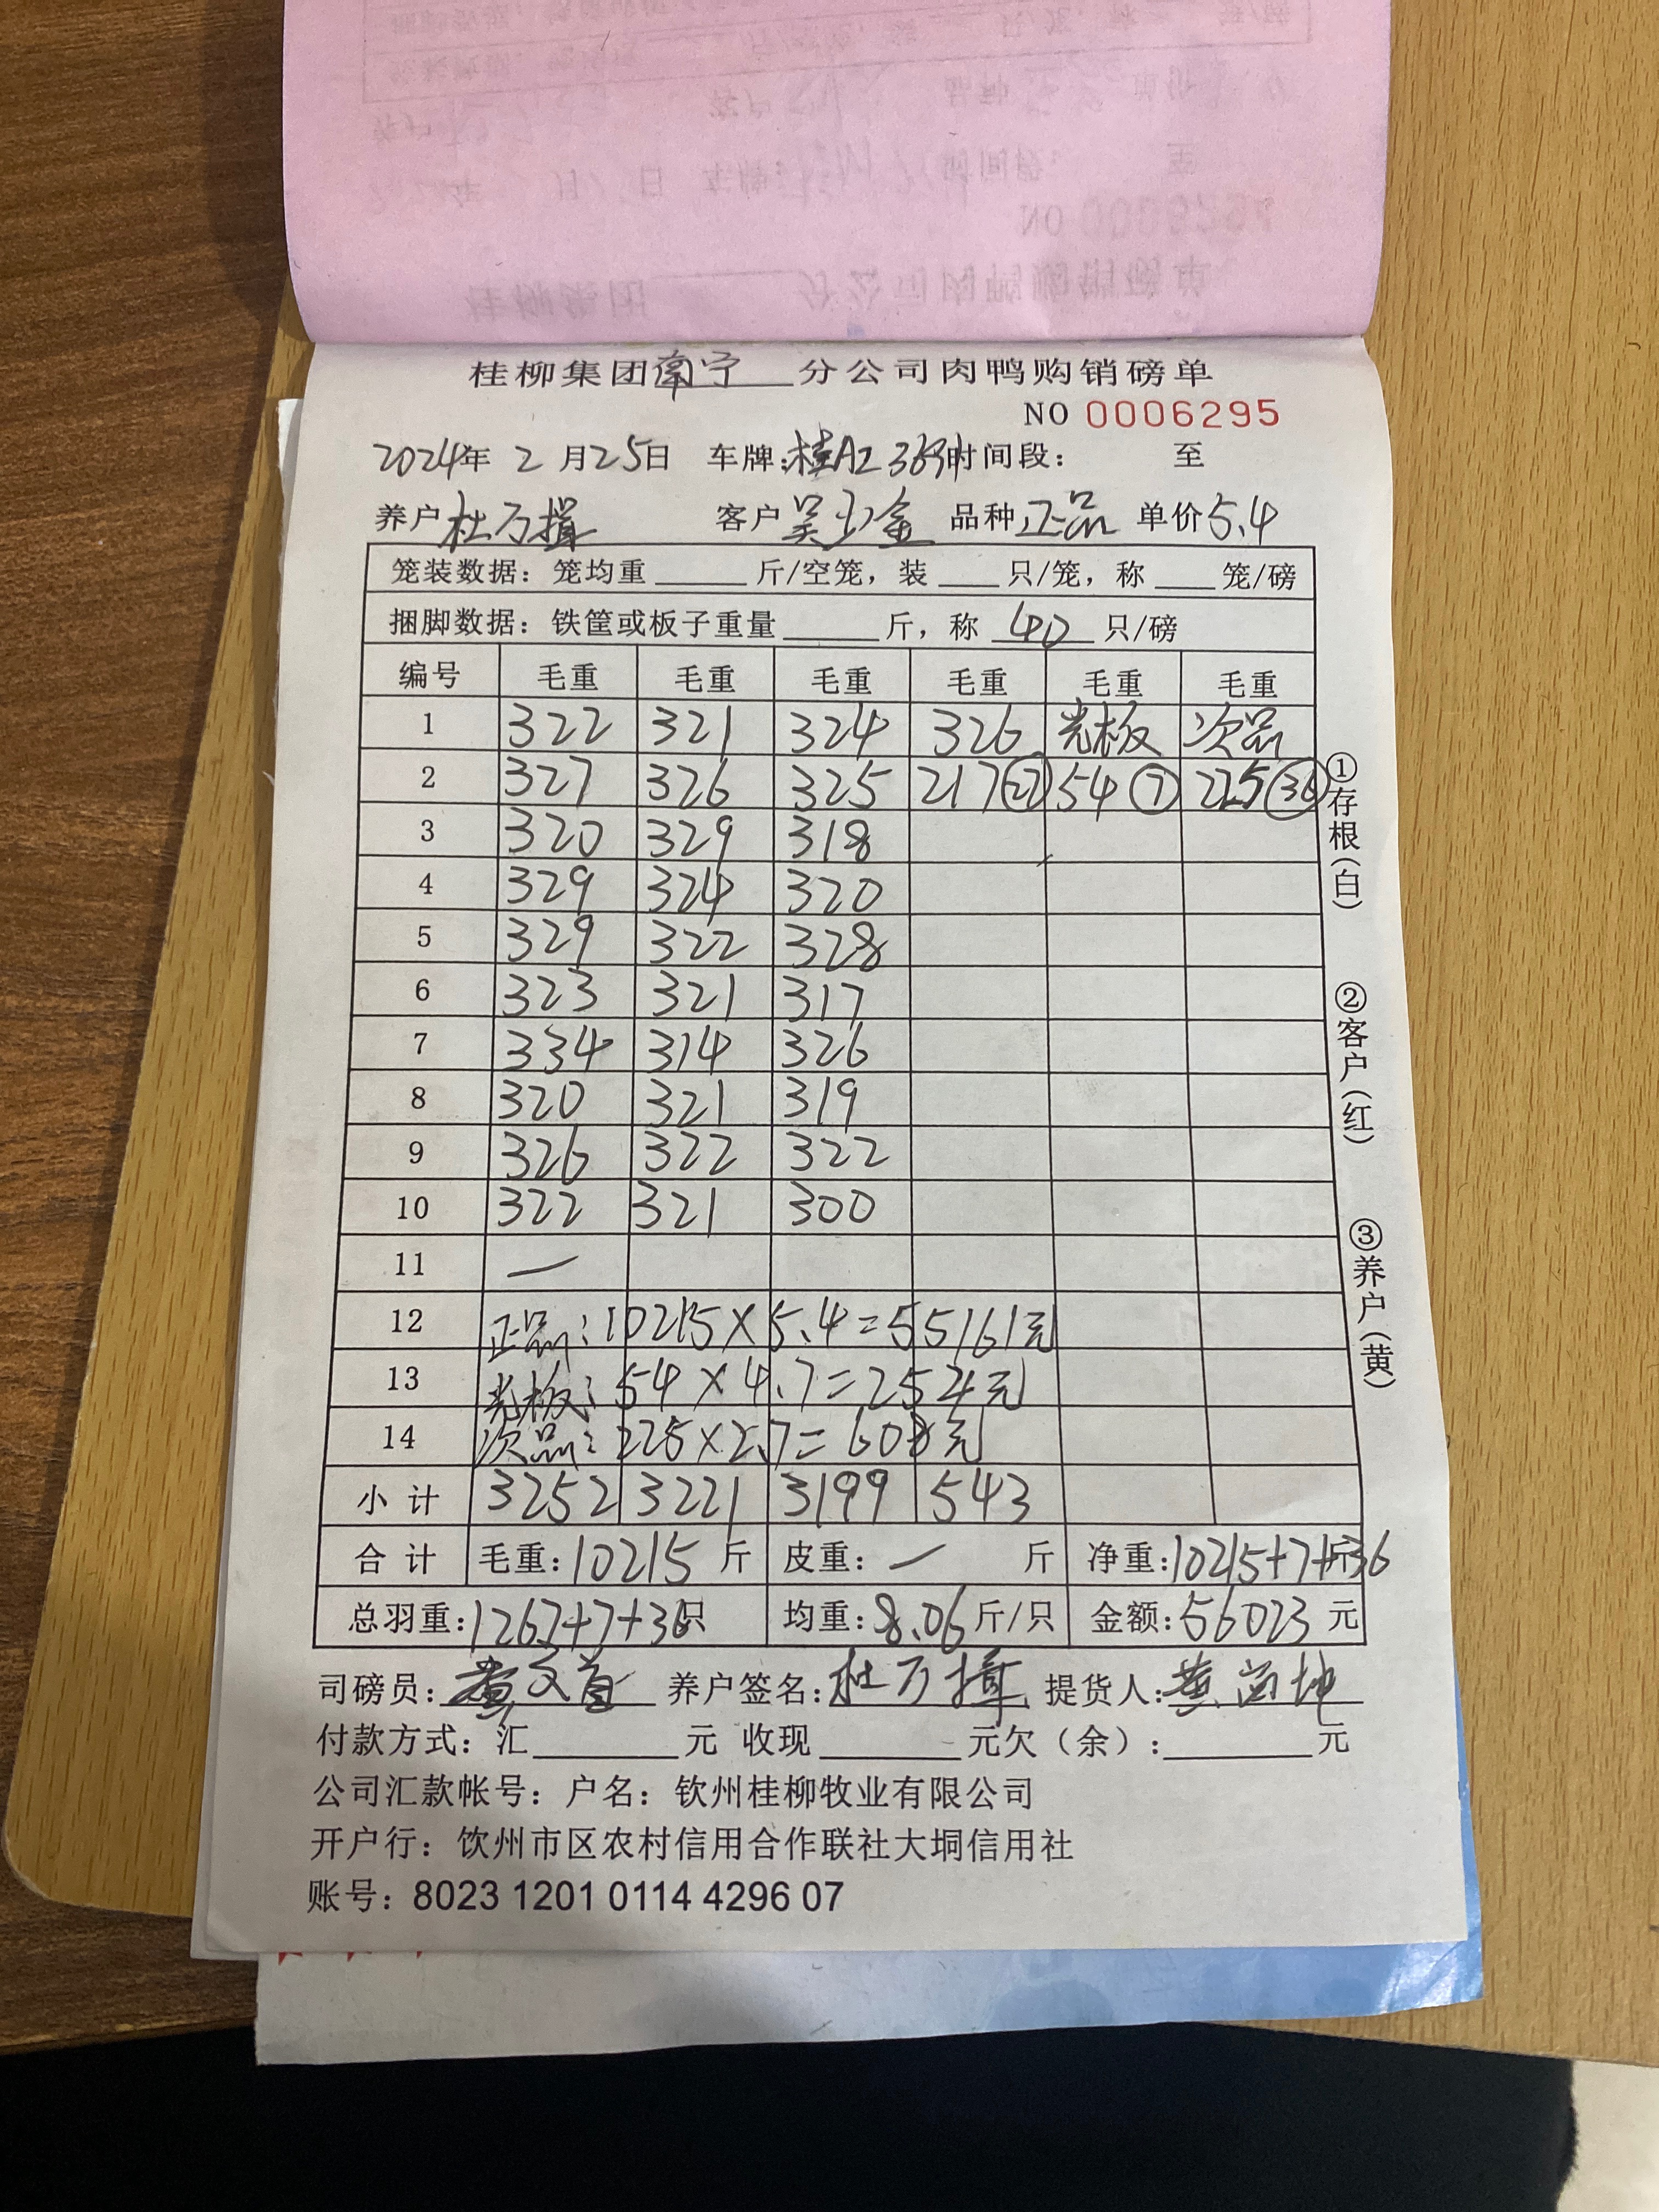 桂柳集团南宁分公司肉鸭购销磅单
NO 0006295
2024年 2 月25日 车牌: 时间段: 至
养户 杜万揖 客户 吴 金 品种 正品 单价 5.4
笼装数据: 笼均重 斤/空笼, 装 只/笼, 称 笼/磅
捆脚数据: 铁筐或板子重量 斤, 称 40 只/磅
编号 毛重 毛重 毛重 毛重 毛重 毛重
1 322 321 324 326 光板 次品
2 327 326 325 217 27 54 7 225 36
3 320 329 318
4 329 324 320
5 329 322 328
6 323 321 317
7 334 314 326
8 320 321 319
9 326 322 322
10 322 321 300
11 一
12 正品: 10215×5.4=55161元
13 光板: 54×4.7=254元
14 次品: 225×2.7=608元
小计 3252 3221 3199 543
合计 毛重: 10215 斤 皮重: 一 斤 净重: 10215+7+36 斤
总羽重: 1267+7+36只 均重: 8.06 斤/只 金额: 56023 元
司磅员: 黄文首 养户签名: 杜万揖 提货人: 黄 坤
付款方式: 汇 元 收现 元欠(余): 元
公司汇款帐号: 户名: 钦州桂柳牧业有限公司
开户行: 饮州市区农村信用合作联社大垌信用社
账号: 8023 1201 0114 4296 07
①存根(白)
②客户(红)
③养户(黄)